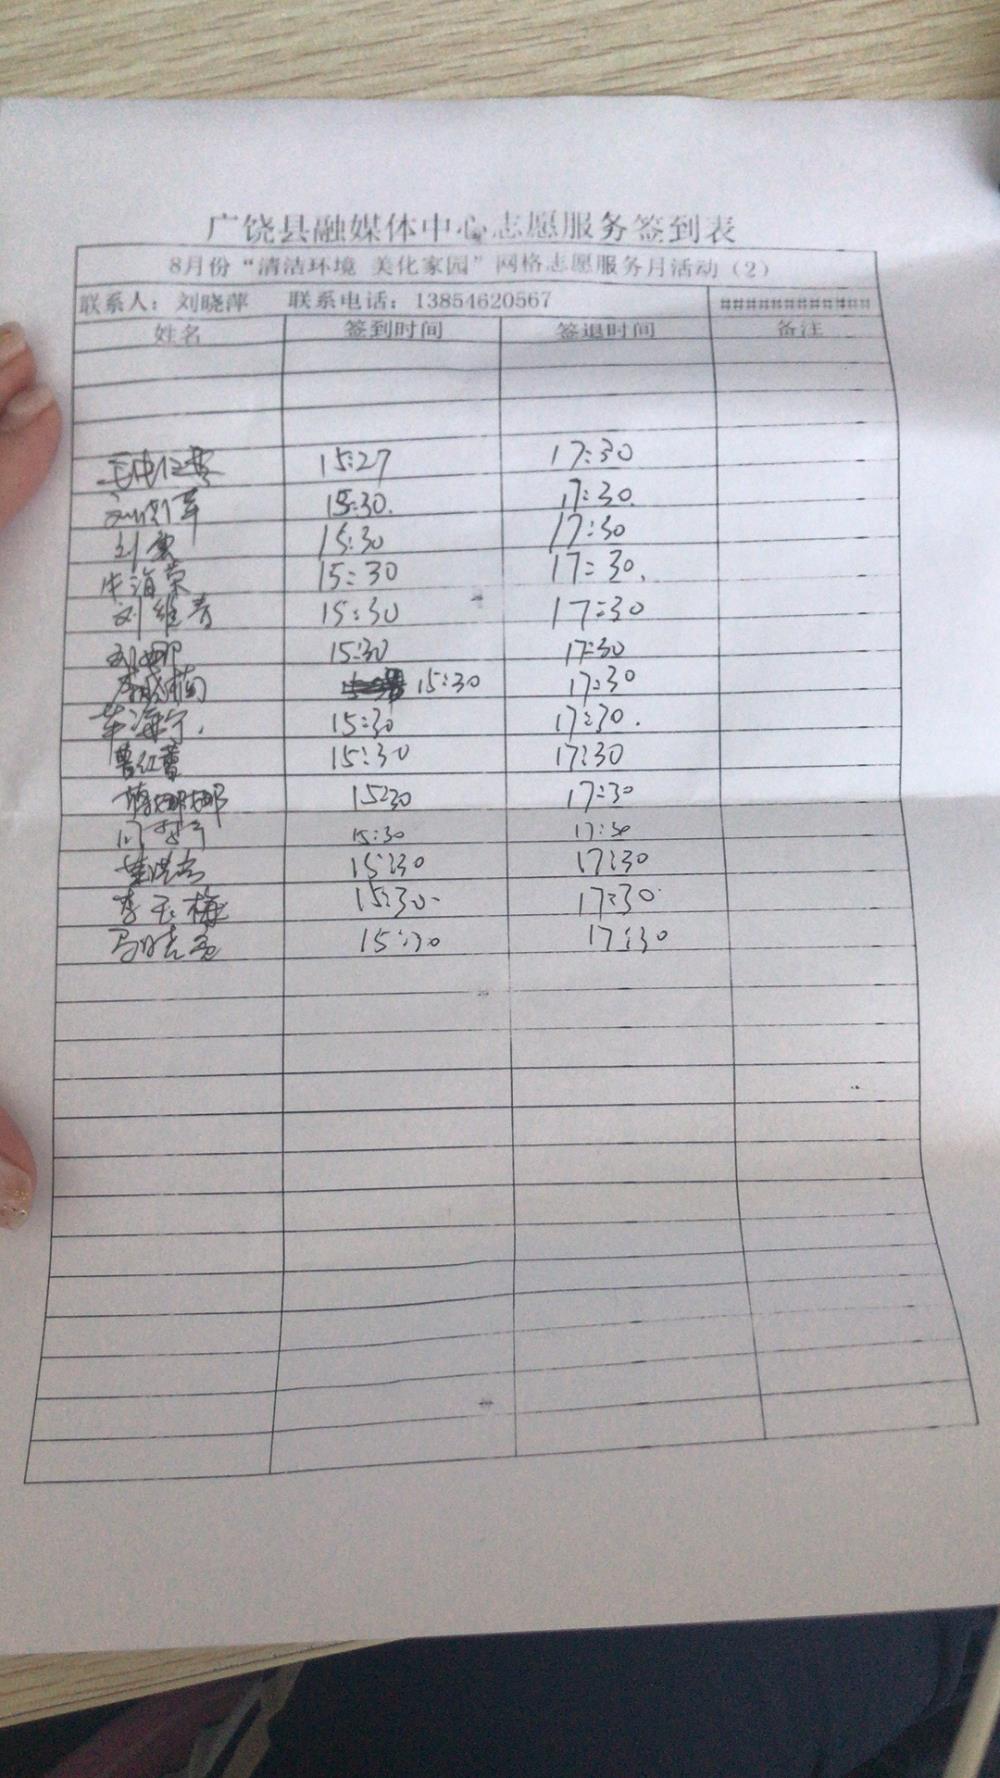 广饶县融媒体中心志愿服务签到表
8月份“清洁环境 美化家园”网格志愿服务月活动（2）
联系人：刘晓萍 联系电话：13854620567 ############
姓名 签到时间 签退时间 备注
15:27 17:30
15:30. 17:30.
15:30 17:30
牛海荣 15:30 17:30.
刘维春 15:30 17:30
15:30 17:30
15:30 17:30
15:30 17:30.
曹红蕾 15:30 17:30
娜娜 15:30 17:30
15:30 17:30
15:30 17:30
李玉梅 15:30- 17:30
马晓亮 15:30 17:30